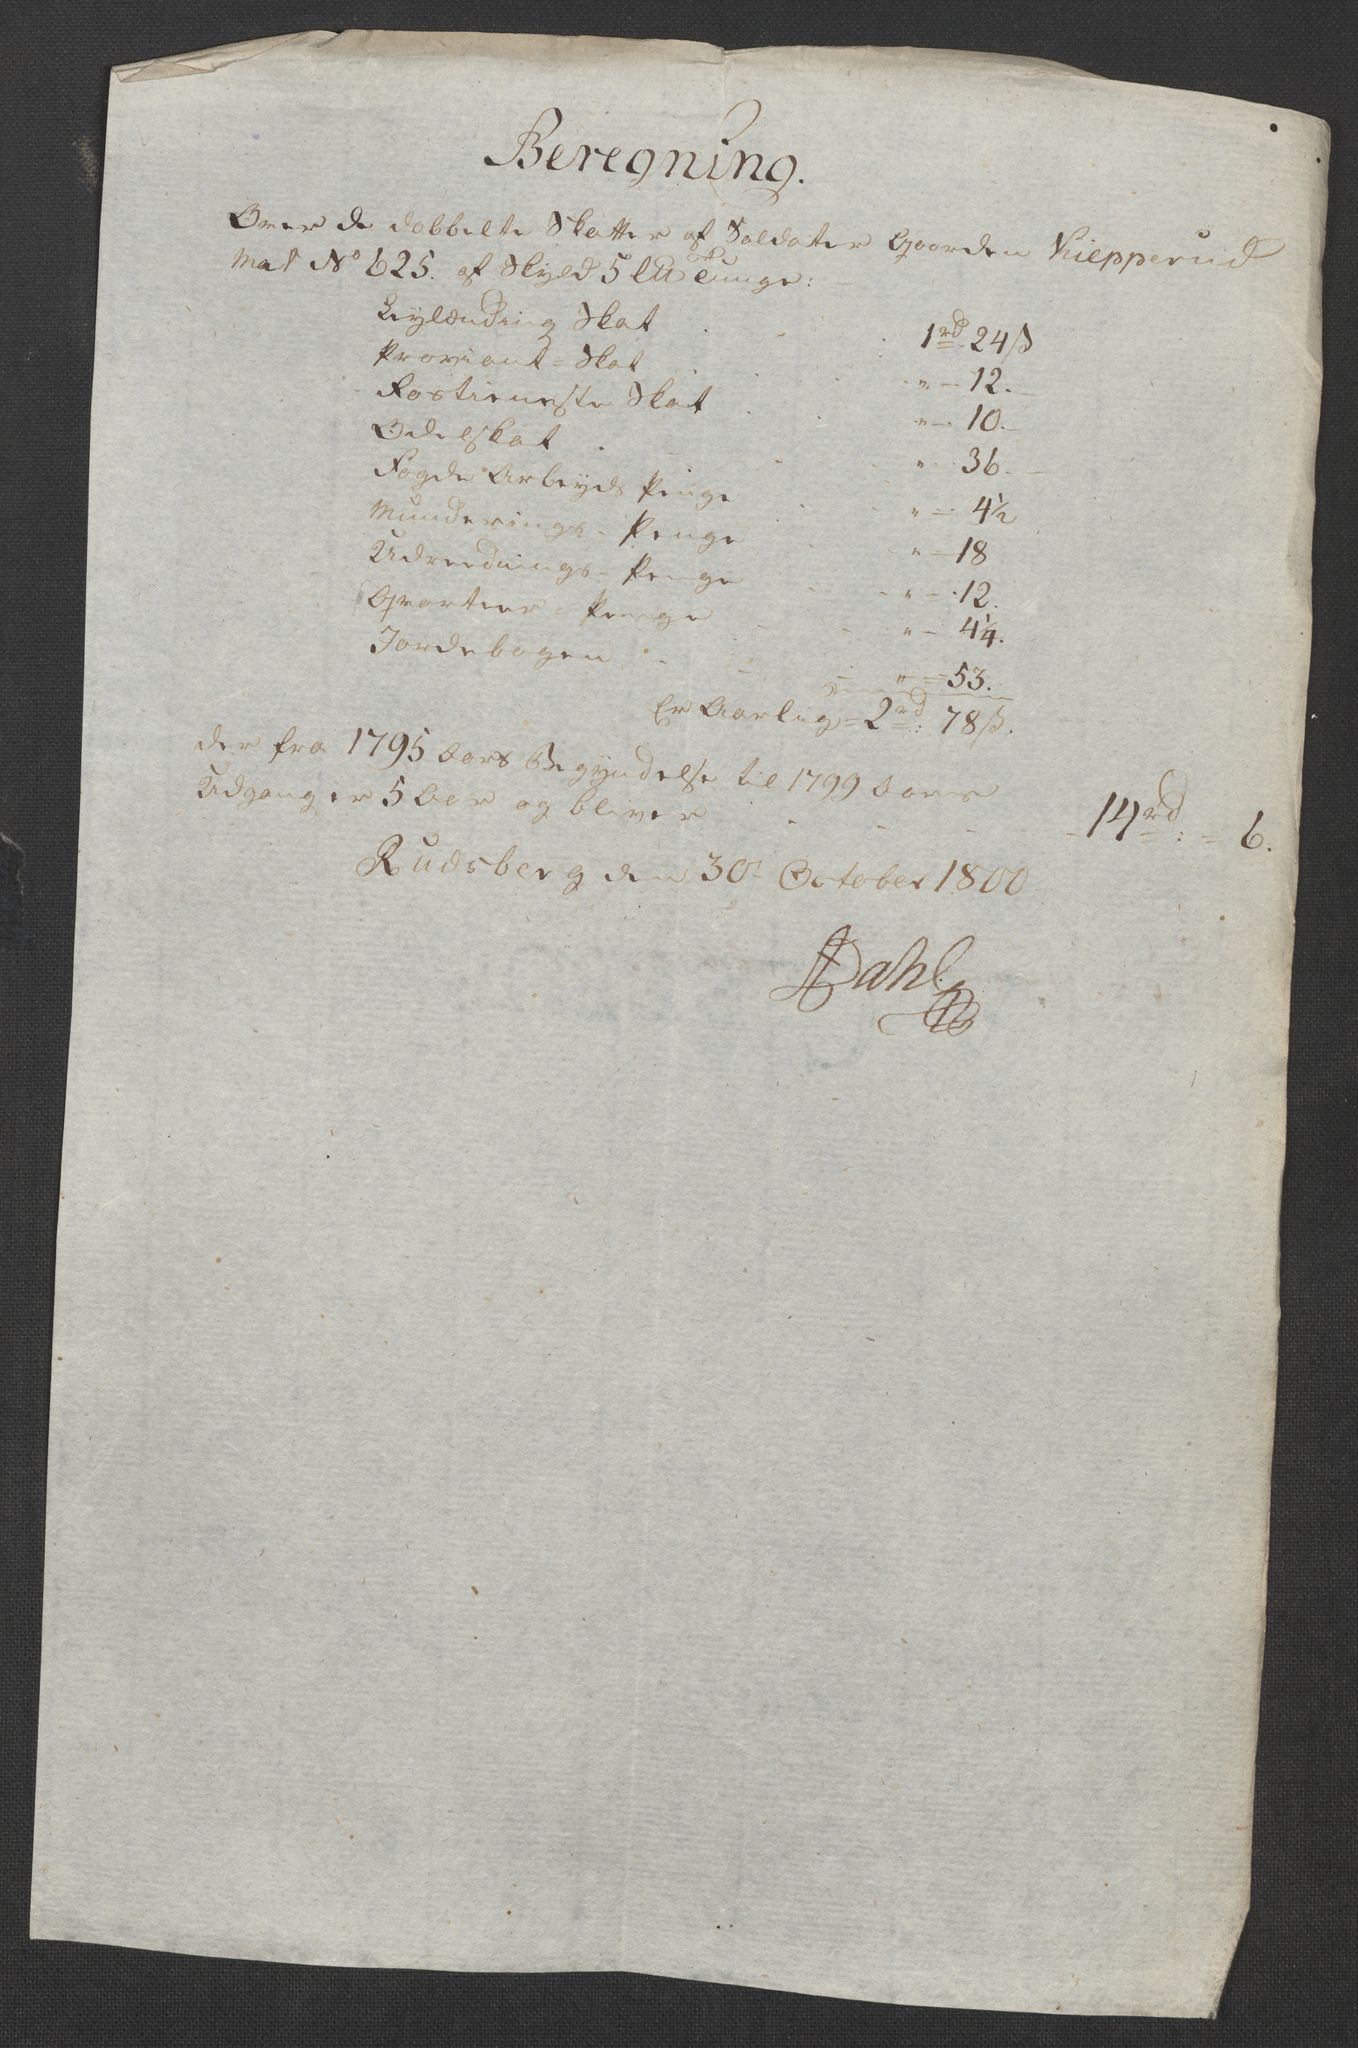 Beregning.
Over de dobbelte Skatter af Soldater Gaarden Kiepperud
Mat No 625. af Skyld 5 lll Tunge:
Leylænding Skat 1 rd 24 ß
Proviant-Skat " - 12.
Rostieneste Skat " - 10.
Odelskat " - 36.
Fogde Arbeyds Penge " - 4 1/2
Munderings-Penge " - 18
Udreednings-Penge " - 12.
Qvarteer-Penge " - 4 1/4.
Jordebogen " - 53.
Er Aarlig = 2 rd: 78 ß.
der fra 1795 Aars Begyndelse til 1799 Aars
Udgang er 5 Aar og bliver - - - 14 rd: = 6.
Rudsberg den 30t October 1800
Dahl